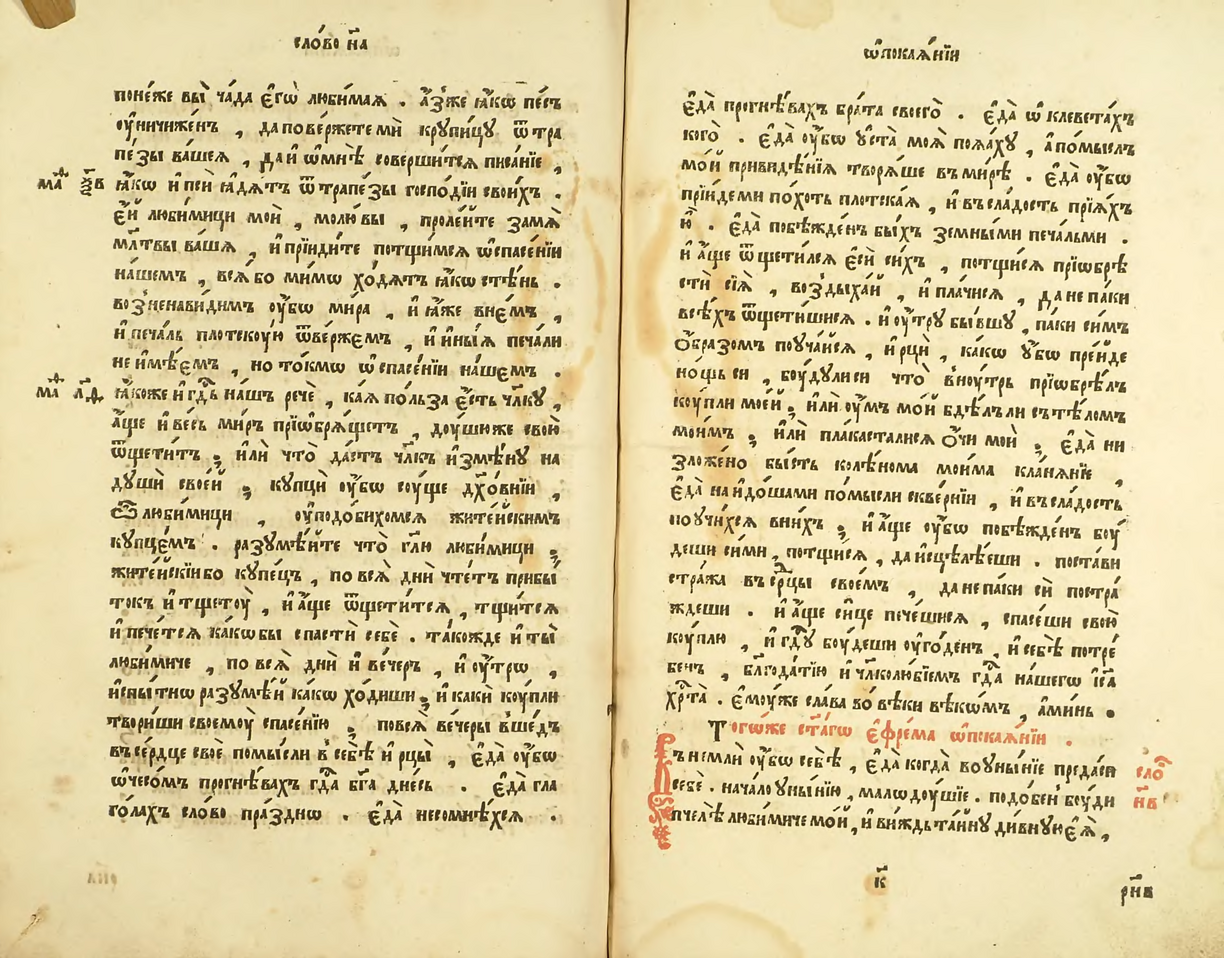 сло́во н҃а
поне́же вы̀ ча́да є҆гѡ̀ люби́маѧ . а҆́зже ꙗ҆́кѡ пе́съ
ᲂу҆ничиже́нъ , да пове́ржете мѝ крупи́цꙋ ѿ тра
пе́зы ва́шеѧ , да и҆ ѡ҆ мнѣ̀ соверши́тсѧ писа́нїе ,
маѳ҇ ѯ҃в ꙗ҆́кѡ и҆ псѝ ꙗ҆дѧ́тъ ѿ трапе́зы госпо́дїи свои́хъ .
є҆́й люби́мици моѝ , молю́ вы , проле́йте за мѧ̀
мл҃твы ва́шѧ , и҆ прїиди́те потщи́мсѧ ѡ҆ спасе́нїи
на́шемъ , всѧ́ бо ми́мѡ хо́дѧтъ ꙗ҆́кѡ стѣ́нь .
воз̾ненави́димъ ᲂу҆́бѡ ми́ра , и҆ ꙗ҆̀же в не́мъ ,
и҆ печа́ль плотскᲂу́ю ѿве́ржемъ , и҆ и҆ны́ѧ печа́ли
не и҆мѣ́емъ , но то́кмѡ ѡ҆ спасе́нїи на́шемъ .
маѳ҇ л҃д ꙗ҆́коже и҆ гд҇ь на́шъ речѐ , ка́ѧ по́льза є҆́сть чл҃кꙋ ,
а҆́ще и҆ ве́сь ми́ръ прїѡбрѧ́щетъ , дᲂу́шꙋ же свою̀
ѿщети́тъ ; и҆лѝ что̀ да́стъ чл҃къ и҆змѣ́нꙋ на
душѝ свое́й ; купцѝ ᲂу҆́бѡ сꙋще дх҃о́внїи ,
ѽ люби́мици , ᲂу҆подо́бихомсѧ жите́йскимъ
купце́мъ . разꙋмѣ́йте что̀ гл҃ю люби́мици ;
жите́йскїи бо купе́цъ , по всѧ̀ днѝ чте́тъ прибы́
токъ и҆ тщетᲂу̀ , и҆ а҆́ще ѿщети́тсѧ , тщи́тсѧ
и҆ пече́тсѧ ка́кѡ бы спастѝ себѐ . та́кожде и҆ ты̀
люби́миче , по всѧ̀ днѝ и҆ ве́черъ , и҆ ᲂу҆́трѡ ,
и҆спы́тнѡ разꙋмѣ́й ка́кѡ хо́диши ; и҆ каки́ кᲂу́пли
твори́ши своемᲂу̀ спасе́нїю ; по всѧ̀ ве́черы в̾ше́дъ
въ се́рдце своѐ помы́сли в̾ себѣ̀ и҆ рцы̀ , є҆да̀ ᲂу҆́бѡ
ѡ҆ чесо́мъ прогнѣ́вахъ гд҇а бг҃а дне́сь . є҆да̀ гла
го́лахъ сло́во пра́зднѡ . є҆да̀ несомнѣ́хсѧ .
ѡ҆ покаѧ́нїи
є҆да̀ прогнѣ́вахъ бра́та своего̀ . є҆да̀ ѡ҆клевета́хъ
кого̀ . є҆да̀ ᲂу҆́бѡ ᲂу҆ста̀ моѧ̀ поѧ́хꙋ , а҆ по́мыслъ
мо́й привидѣ́нїѧ творѧ́ше въ ми́рѣ . є҆да̀ ᲂу҆́бѡ
прїи́де ми по́хоть плотска́ѧ , и҆ въ сла́дость прїѧ́хъ
ю҆̀ . є҆да̀ побѣжде́нъ бы́хъ земны́ми печа́льми .
и҆ а҆́ще ѿщети́лсѧ є҆сѝ си́хъ , потщи́сѧ прїѡбрѣ
стѝ сїѧ̀ , воз̾дыха́й , и҆ пла́чисѧ , да не па́ки
всѣ́хъ ѿщети́шисѧ . и҆ ᲂу҆́трꙋ бы́вшꙋ , па́ки си́мъ
о҆́бразомъ поꙋча́йсѧ , и҆ рцѝ , ка́кѡ ᲂу҆́бѡ пре́йде
но́щь сиѧ , бᲂу́дꙋ ли си что̀ в̾нᲂу́трь прїѡбрѣ́лъ
кᲂу́пли мое́й ; и҆лѝ ᲂу҆́мъ мо́й бдѣ́лъ ли съ тѣ́ломъ
мои́мъ ; и҆лѝ пла́касталисѧ о҆́чи моѝ ; є҆да̀ ни
зложе́но бы́сть колѣ́нома мои́ма кла́нѧнїе ,
є҆да̀ наидо́ша ми по́мысли скве́рнїи , и҆ въ сла́дость
поꙋчи́хсѧ в ни́хъ ; и҆ а҆́ще ᲂу҆́бѡ побѣжде́нъ бᲂу́
деши си́ми , потщи́сѧ , да и҆сцѣлѣ́еши . поста́ви
стра́жа въ ср҇дцы свое́мъ , да не па́ки сѝ постра́
ждеши . и҆ а҆́ще си́це пече́шисѧ , спасе́ши свою̀
кᲂу́плю , и҆ гд҇ꙋ бᲂу́деши ᲂу҆го́денъ , и҆ себѣ̀ потре́
бенъ , бл҃года́тїю и҆ чл҃колю́бїемъ гд҇а на́шегѡ і҆с҃а
хр҇та̀ . є҆мᲂу́же сла́ва во вѣ́ки вѣкѡ́мъ , а҆ми́нь .
Тогѡ́же ст҃а́гѡ є҆фре́ма ѡ҆ покаѧ́нїи .
Въне́мли ᲂу҆́бѡ себѣ̀ , є҆да̀ когда̀ во ᲂу҆ны́нїе преда́си сло҇
себѐ . нача́ло ᲂу҆ны́нїю , малѡдᲂу́шїе . подо́бен̾ бᲂу́ди н҃в
пчелѣ̀ люби́миче мо́й , и҆ ви́ждь та́йнꙋ ди́внꙋю є҆ѧ̀ ,
к҃
рн҃в